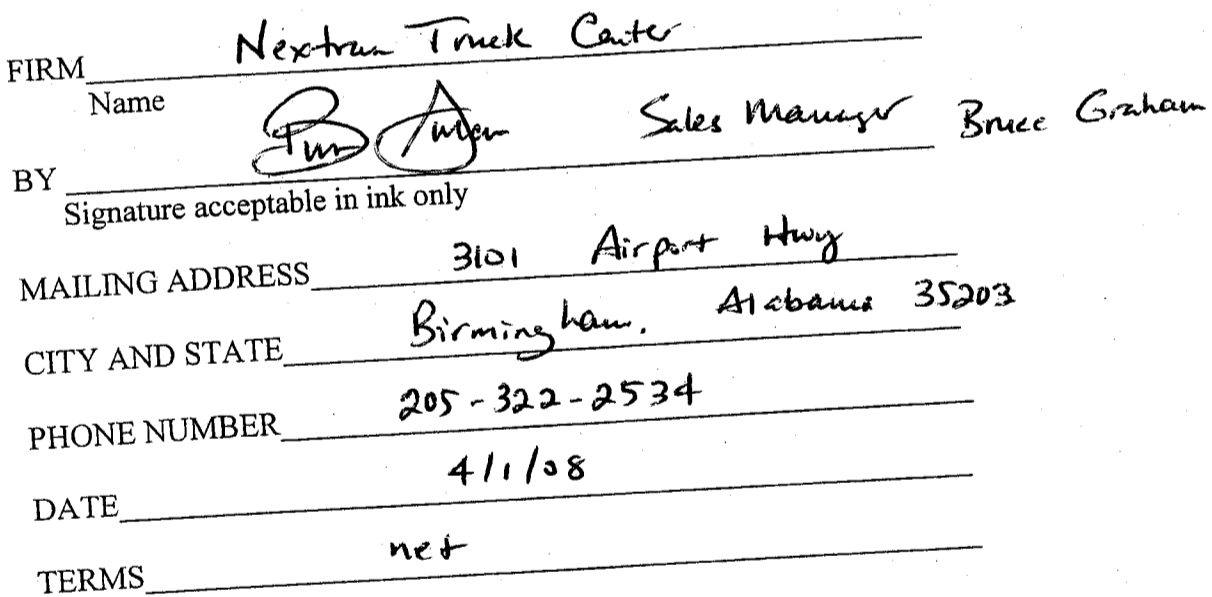 FIRM Nextran Truck Center
Name
BY Sales Manager Bruce Graham
Signature acceptable in ink only
MAILING ADDRESS 3101 Airport Hwy
CITY AND STATE Birmingham, Alabama 35203
PHONE NUMBER 205-322-2534
DATE 4/1/08
TERMS net